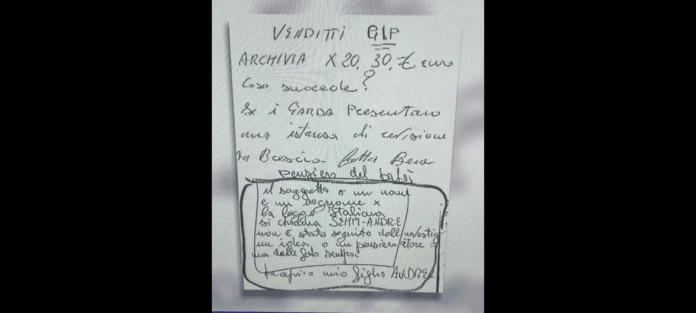 VENDITTI GIP
ARCHIVIA X 20. 30. € euro
Cosa succede?
Se i GARDA Presentano
una istanza di revisione
Brescia Bene
pensiero del
il soggetto o un nome
e un cognome x
la legge Italiana
si chiama SEMPI-ANDRE
non è stato seguito dall'investig
un idea o un pensiero
ma dalle foto sembra
mio figlio ANDRE